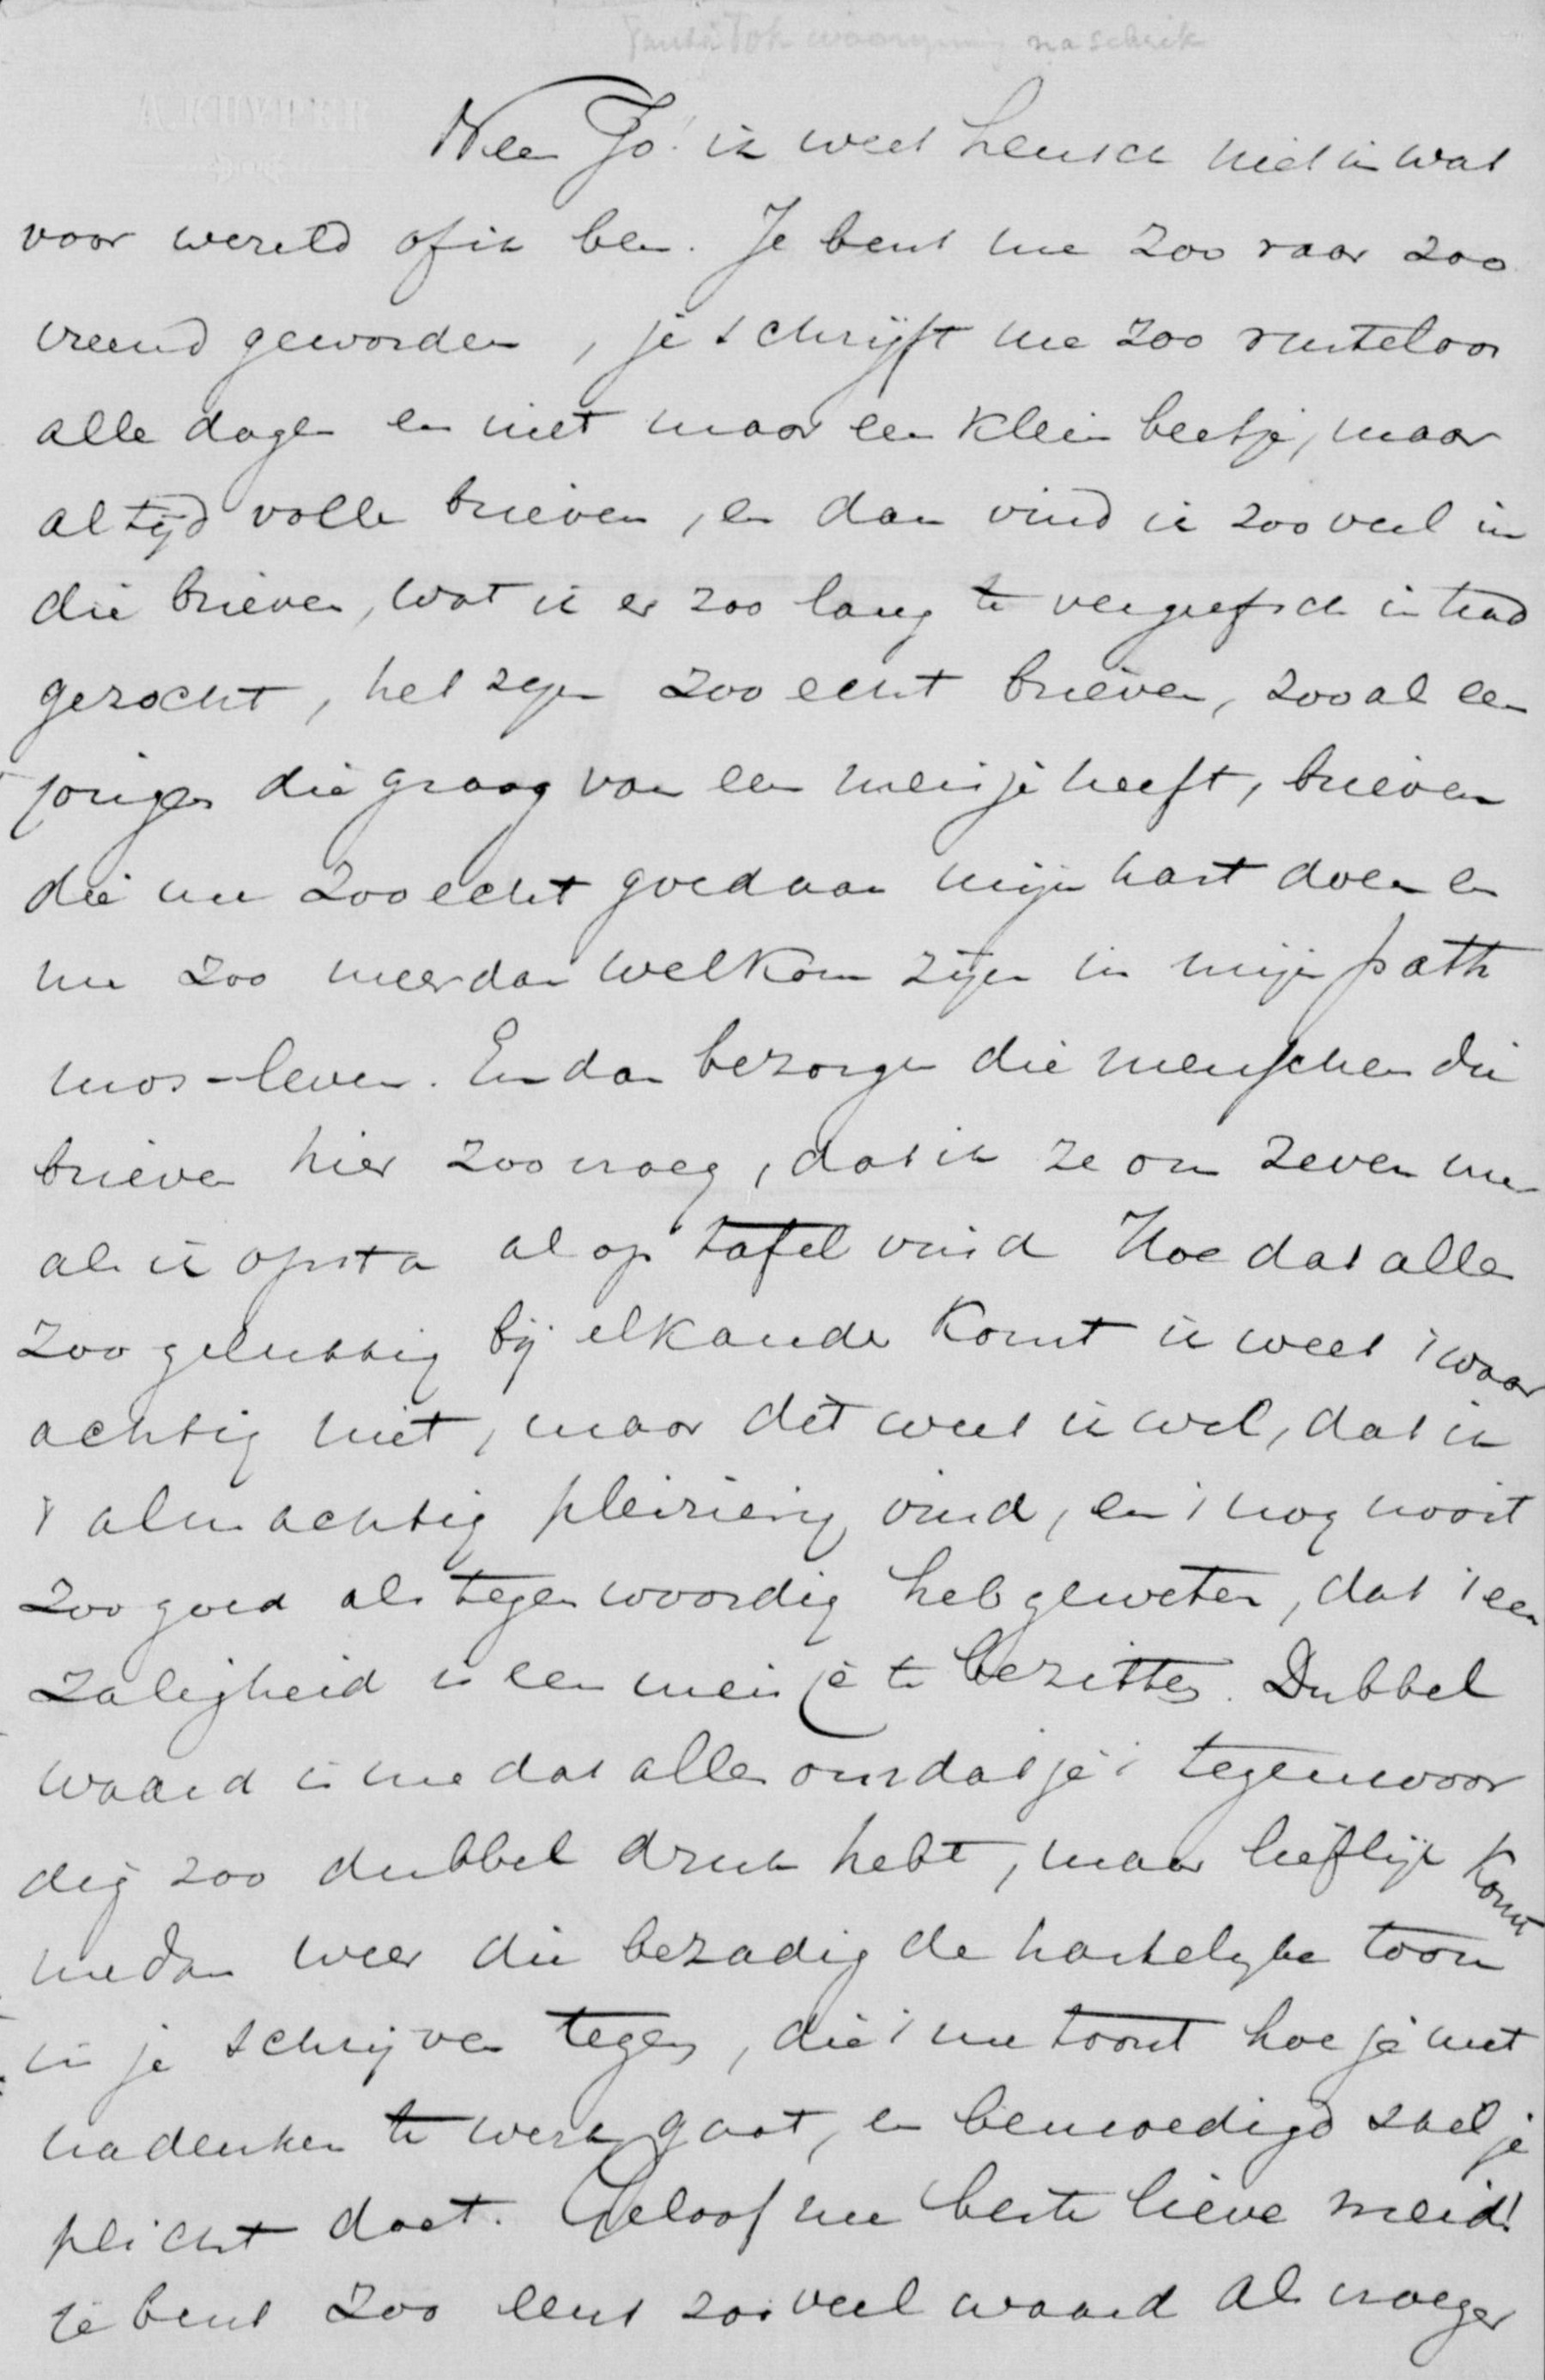 na schrik
Neen Jo! ik weet heusch niet in wat
voor wereld of ik ben. Je bent me zoo raar zoo
vreemd geworden, je schrijft me zoo rusteloos
alle dagen en niet maar een klein beetje, maar
altijd volle brieven, en dan vind ik zooveel in
die brieven, wat ik er zoo lang te vergeefsch in had
gezocht, het zijn zoo echt brieven, zooals een
jongen die graag van een meisje heeft, brieven
die me zoo echt goed aan mijn hart doen en
me zoo meer dan welkom zijn in mijn path
mos-leven. En dan bezorgen die menschen die
brieven hier zoo vroeg, dat ik ze om zeven uur
als ik opsta al op tafel vind Hoe dat alles
zoo gelukkig bij elkander komt ik weet 't waar
achtig niet, maar dit weet ik wel, dat ik
't almachtig pleizierig vind, en 't nog nooit
zoo goed als tegenwoordig heb geweten, dat 't een
zaligheid is een meisje te bezitten. Dubbel
waard is me dat alles omdat je 't tegenwoor
dig zoo dubbel druk hebt, maar lieflijk komt
me dan weer die bezadigde hartelijke toon
in je schrijven tegen, die 't me toont hoe je met
nadenken te werk gaat, en bemoedigd steeds je
plicht doet. Geloof me beste lieve meid!
je bent zoo eens zooveel waard als vroeger